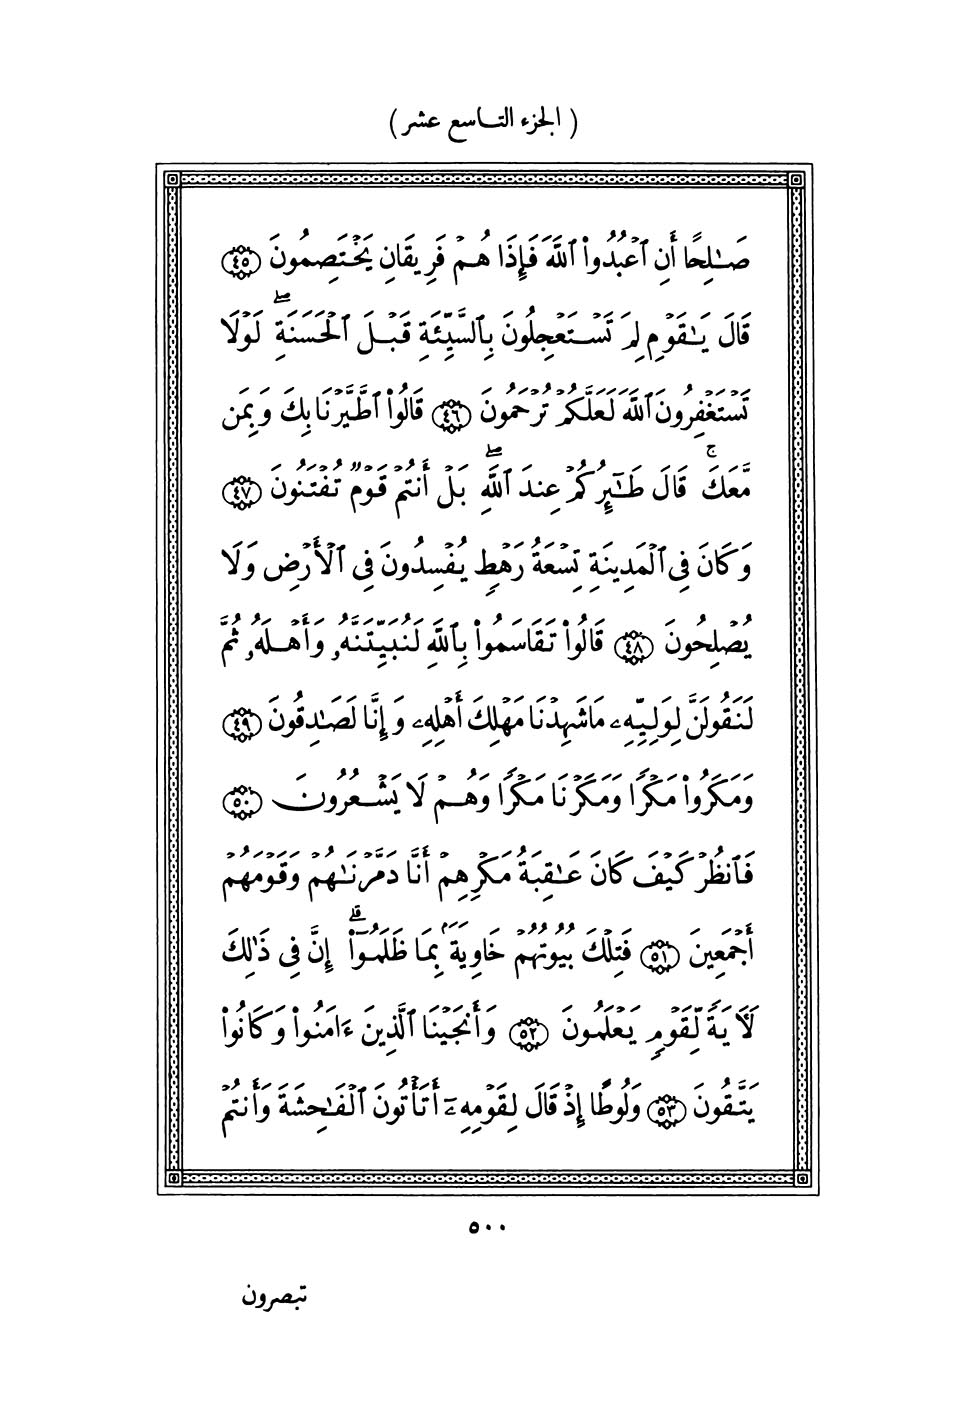 ( الجزء التاسع عشر )
صَـٰلِحًا أَنِ ٱعْبُدُوا۟ ٱللَّهَ فَإِذَا هُمْ فَرِيقَانِ يَخْتَصِمُونَ ٤٥
قَالَ يَـٰقَوْمِ لِمَ تَسْتَعْجِلُونَ بِٱلسَّيِّئَةِ قَبْلَ ٱلْحَسَنَةِ ۖ لَوْلَا
تَسْتَغْفِرُونَ ٱللَّهَ لَعَلَّكُمْ تُرْحَمُونَ ٤٦ قَالُوا۟ ٱطَّيَّرْنَا بِكَ وَبِمَن
مَّعَكَ ۚ قَالَ طَـٰٓئِرُكُمْ عِندَ ٱللَّهِ ۖ بَلْ أَنتُمْ قَوْمٌ تُفْتَنُونَ ٤٧
وَكَانَ فِى ٱلْمَدِينَةِ تِسْعَةُ رَهْطٍ يُفْسِدُونَ فِى ٱلْأَرْضِ وَلَا
يُصْلِحُونَ ٤٨ قَالُوا۟ تَقَاسَمُوا۟ بِٱللَّهِ لَنُبَيِّتَنَّهُۥ وَأَهْلَهُۥ ثُمَّ
لَنَقُولَنَّ لِوَلِيِّهِۦ مَا شَهِدْنَا مَهْلِكَ أَهْلِهِۦ وَإِنَّا لَصَـٰدِقُونَ ٤٩
وَمَكَرُوا۟ مَكْرًا وَمَكَرْنَا مَكْرًا وَهُمْ لَا يَشْعُرُونَ ٥٠
فَٱنظُرْ كَيْفَ كَانَ عَـٰقِبَةُ مَكْرِهِمْ أَنَّا دَمَّرْنَـٰهُمْ وَقَوْمَهُمْ
أَجْمَعِينَ ٥١ فَتِلْكَ بُيُوتُهُمْ خَاوِيَةًۢ بِمَا ظَلَمُوٓا۟ ۗ إِنَّ فِى ذَٰلِكَ
لَـَٔايَةً لِّقَوْمٍ يَعْلَمُونَ ٥٢ وَأَنجَيْنَا ٱلَّذِينَ ءَامَنُوا۟ وَكَانُوا۟
يَتَّقُونَ ٥٣ وَلُوطًا إِذْ قَالَ لِقَوْمِهِۦٓ أَتَأْتُونَ ٱلْفَـٰحِشَةَ وَأَنتُمْ
٥٠٠
تبصرون